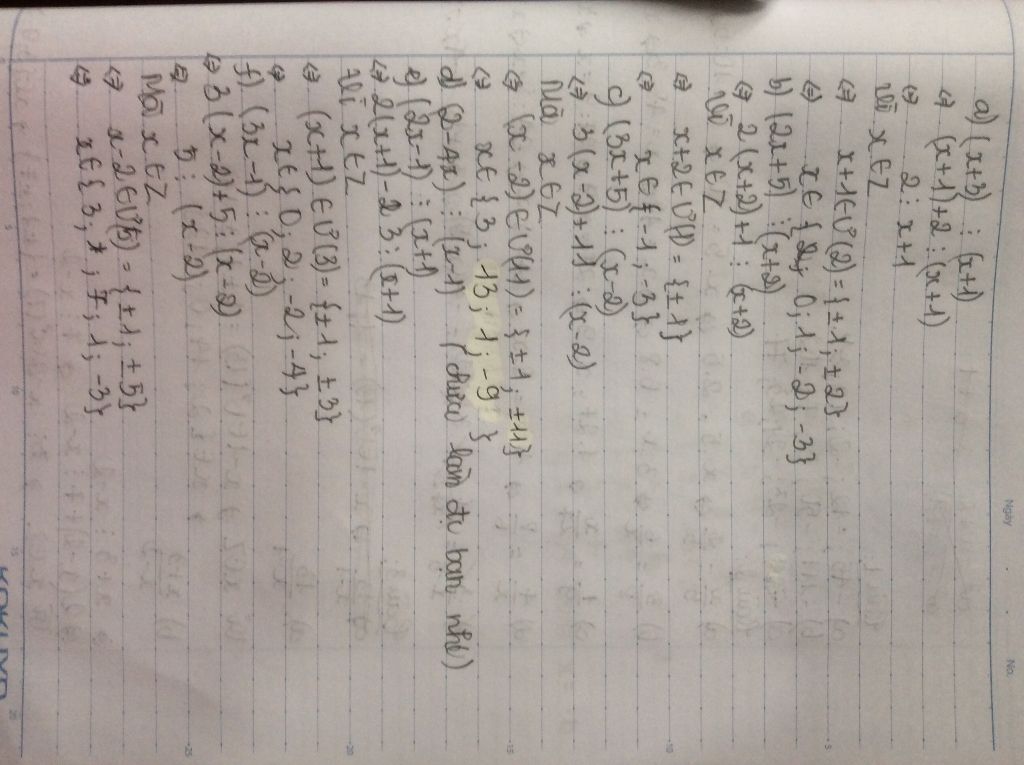 Ngày
No.
a) (x+3) ⋮ (x+1)
⇔ (x+1)+2 ⋮ (x+1)
⇔ 2 ⋮ x+1
Vì x∈Z
⇔ x+1∈Ư(2)={±1; ±2}
⇔ x∈{2; 0; 1; -2; -3}
b) (2x+5) ⋮ (x+2)
⇔ 2(x+2)+1 ⋮ (x+2)
Vì x∈Z
⇔ x+2∈Ư(1)={±1}
⇔ x∈{-1; -3}
c) (3x+5) ⋮ (x-2)
⇔ 3(x-2)+11 ⋮ (x-2)
Mà x∈Z
⇔ (x-2)∈Ư(11)={±1; ±11}
⇔ x∈{3; 13; 1; -9}
d) (2-4x) ⋮ (x-1) (chưa làm đc bạn nhé)
e) (2x-1) ⋮ (x+1)
⇔ 2(x+1)-3 ⋮ (x+1)
Vì x∈Z
⇔ (x+1)∈Ư(3)={±1; ±3}
⇔ x∈{0; 2; -2; -4}
f) (3x-1) ⋮ (x-2)
⇔ 3(x-2)+5 ⋮ (x-2)
⇔ 5 ⋮ (x-2)
Mà x∈Z
⇔ x-2∈Ư(5)={±1; ±5}
⇔ x∈{3; 7; 1; -3}